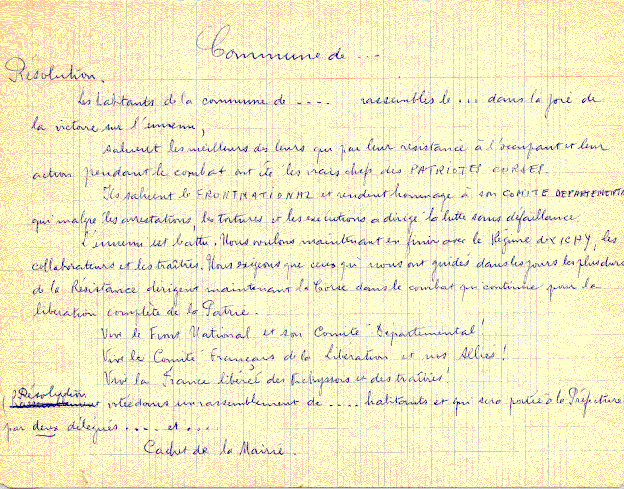 Commune de ...
Résolution.
Les habitants de la commune de .... rassemblés le ... dans la joie de
la victoire sur l'ennemi,
saluent les meilleurs des leurs qui par leur résistance à l'occupant et leur
action pendant le combat ont été les vrais chefs des PATRIOTES CORSES.
Ils saluent le FRONT NATIONAL et rendent hommage à son COMITE DEPARTEMENTA
qui malgré les arrestations, les tortures et les exécutions a dirigé la lutte sans défaillance.
L'ennemi est battu. Nous voulons maintenant en finir avec le Régime de VICHY, les
collaborateurs et les traîtres. Nous exigeons que ceux qui nous ont guidés dans les jours les plus durs
de la Résistance dirigent maintenant la Corse dans le combat qui continue pour la
libération complète de la Patrie.
Vive le Front National et son Comité Départemental!
Vive le Comité Français de la Libération et nos Alliés!
Vive la France libérée des Vichyssois et des traîtres!
Résolution
Rassemblement votée dans un rassemblement de .... habitants et qui sera portée à la Préfecture
par deux délégués .... et ...
Cachet de la Mairie.